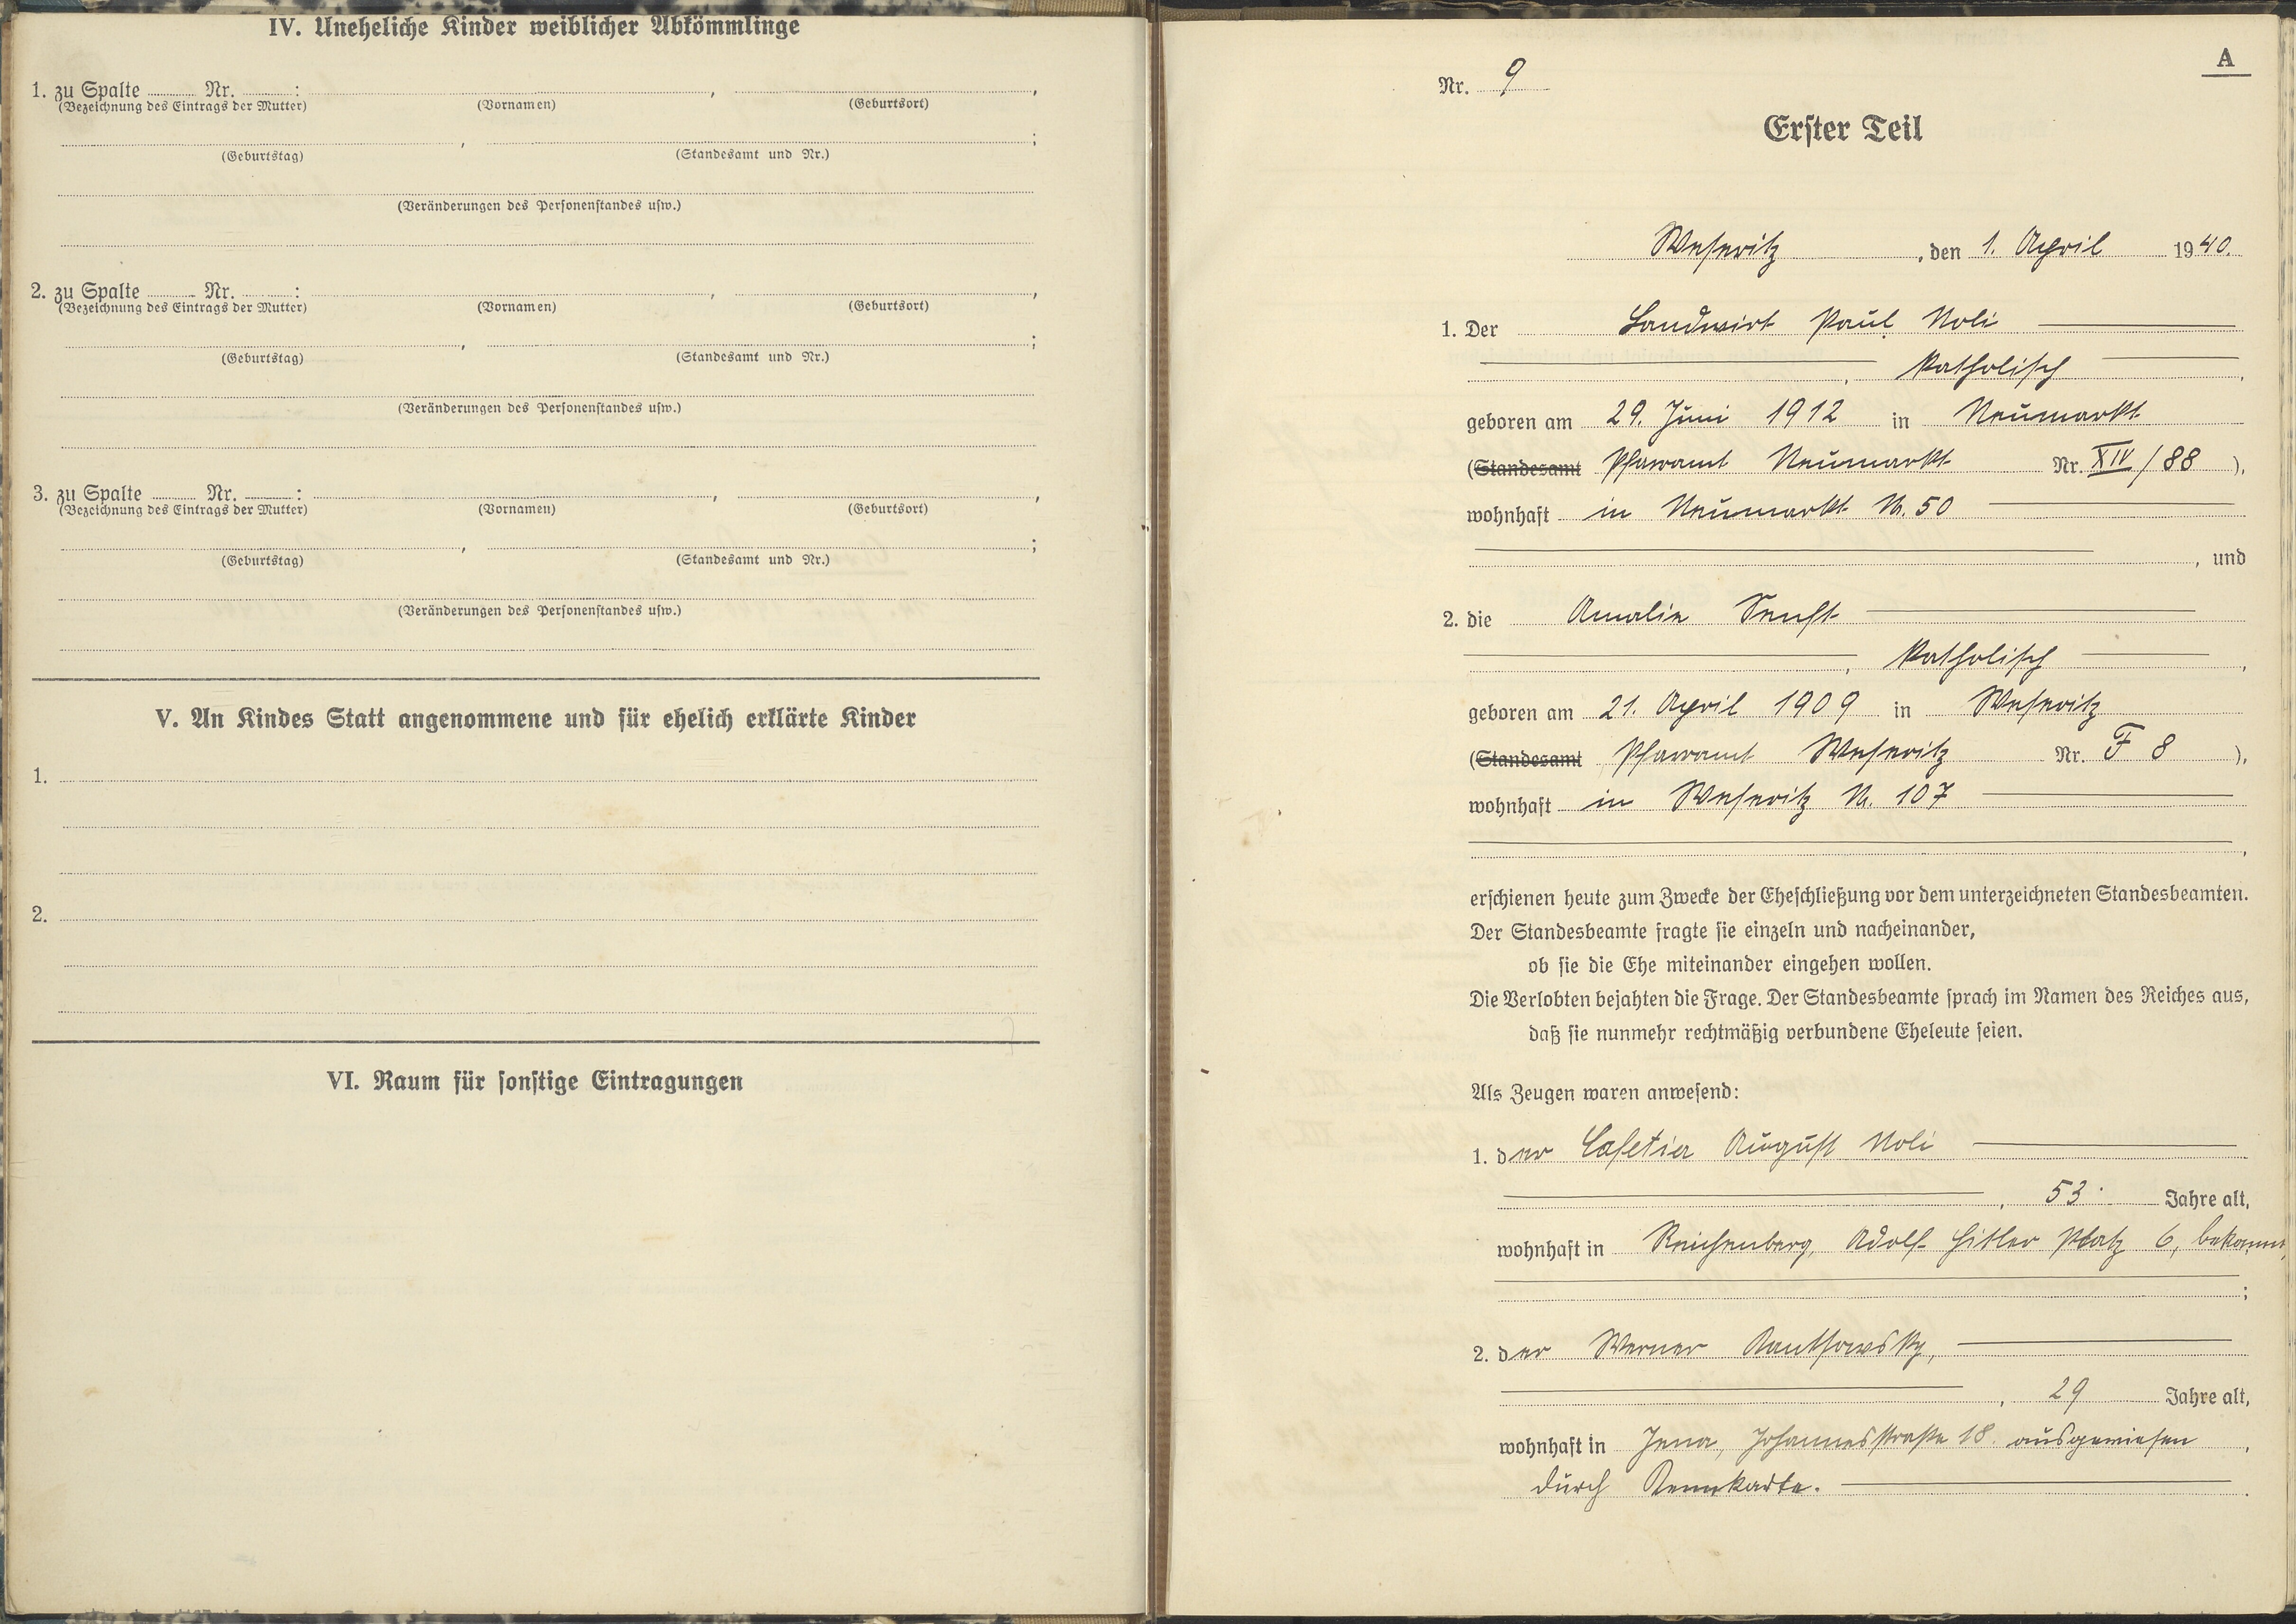 IV. Uneheliche Kinder weiblicher Abkömmlinge
1. zu Spalte ........ Nr. ........ : ........ , ........ ,
(Bezeichnung des Eintrags der Mutter) (Vornamen) (Geburtsort)
........ , ........ ;
(Geburtstag) (Standesamt und Nr.)
(Veränderungen des Personenstandes usw.)
2. zu Spalte ........ Nr. ........ : ........ , ........ ,
(Bezeichnung des Eintrags der Mutter) (Vornamen) (Geburtsort)
........ , ........ ;
(Geburtstag) (Standesamt und Nr.)
(Veränderungen des Personenstandes usw.)
3. zu Spalte ........ Nr. ........ : ........ , ........ ,
(Bezeichnung des Eintrags der Mutter) (Vornamen) (Geburtsort)
........ , ........ ;
(Geburtstag) (Standesamt und Nr.)
(Veränderungen des Personenstandes usw.)
V. An Kindes Statt angenommene und für ehelich erklärte Kinder
1.
2.
VI. Raum für sonstige Eintragungen
A
Nr. 9
Erster Teil
Weseritz, den 1. April 1940.
1. Der Landwirt Paul Noli
, katholisch ,
geboren am 29. Juni 1912 in Neumarkt
(Standesamt Pfarramt Neumarkt Nr. XIV/88 ),
wohnhaft in Neumarkt N. 50
, und
2. die Amalie Senft
, katholisch ,
geboren am 21. April 1909 in Weseritz
(Standesamt Pfarramt Weseritz Nr. F 8 ),
wohnhaft in Weseritz N. 107
,
erschienen heute zum Zwecke der Eheschließung vor dem unterzeichneten Standesbeamten.
Der Standesbeamte fragte sie einzeln und nacheinander,
ob sie die Ehe miteinander eingehen wollen.
Die Verlobten bejahten die Frage. Der Standesbeamte sprach im Namen des Reiches aus,
daß sie nunmehr rechtmäßig verbundene Eheleute seien.
Als Zeugen waren anwesend:
1. der Cafetier August Noli
, 53 Jahre alt,
wohnhaft in Reichenberg, Adolf Hitler Platz 6, bekannt,
;
2. der Werner
, 29 Jahre alt,
wohnhaft in Jena, Johannesstraße 18. ausgewiesen ,
durch Kennkarte.